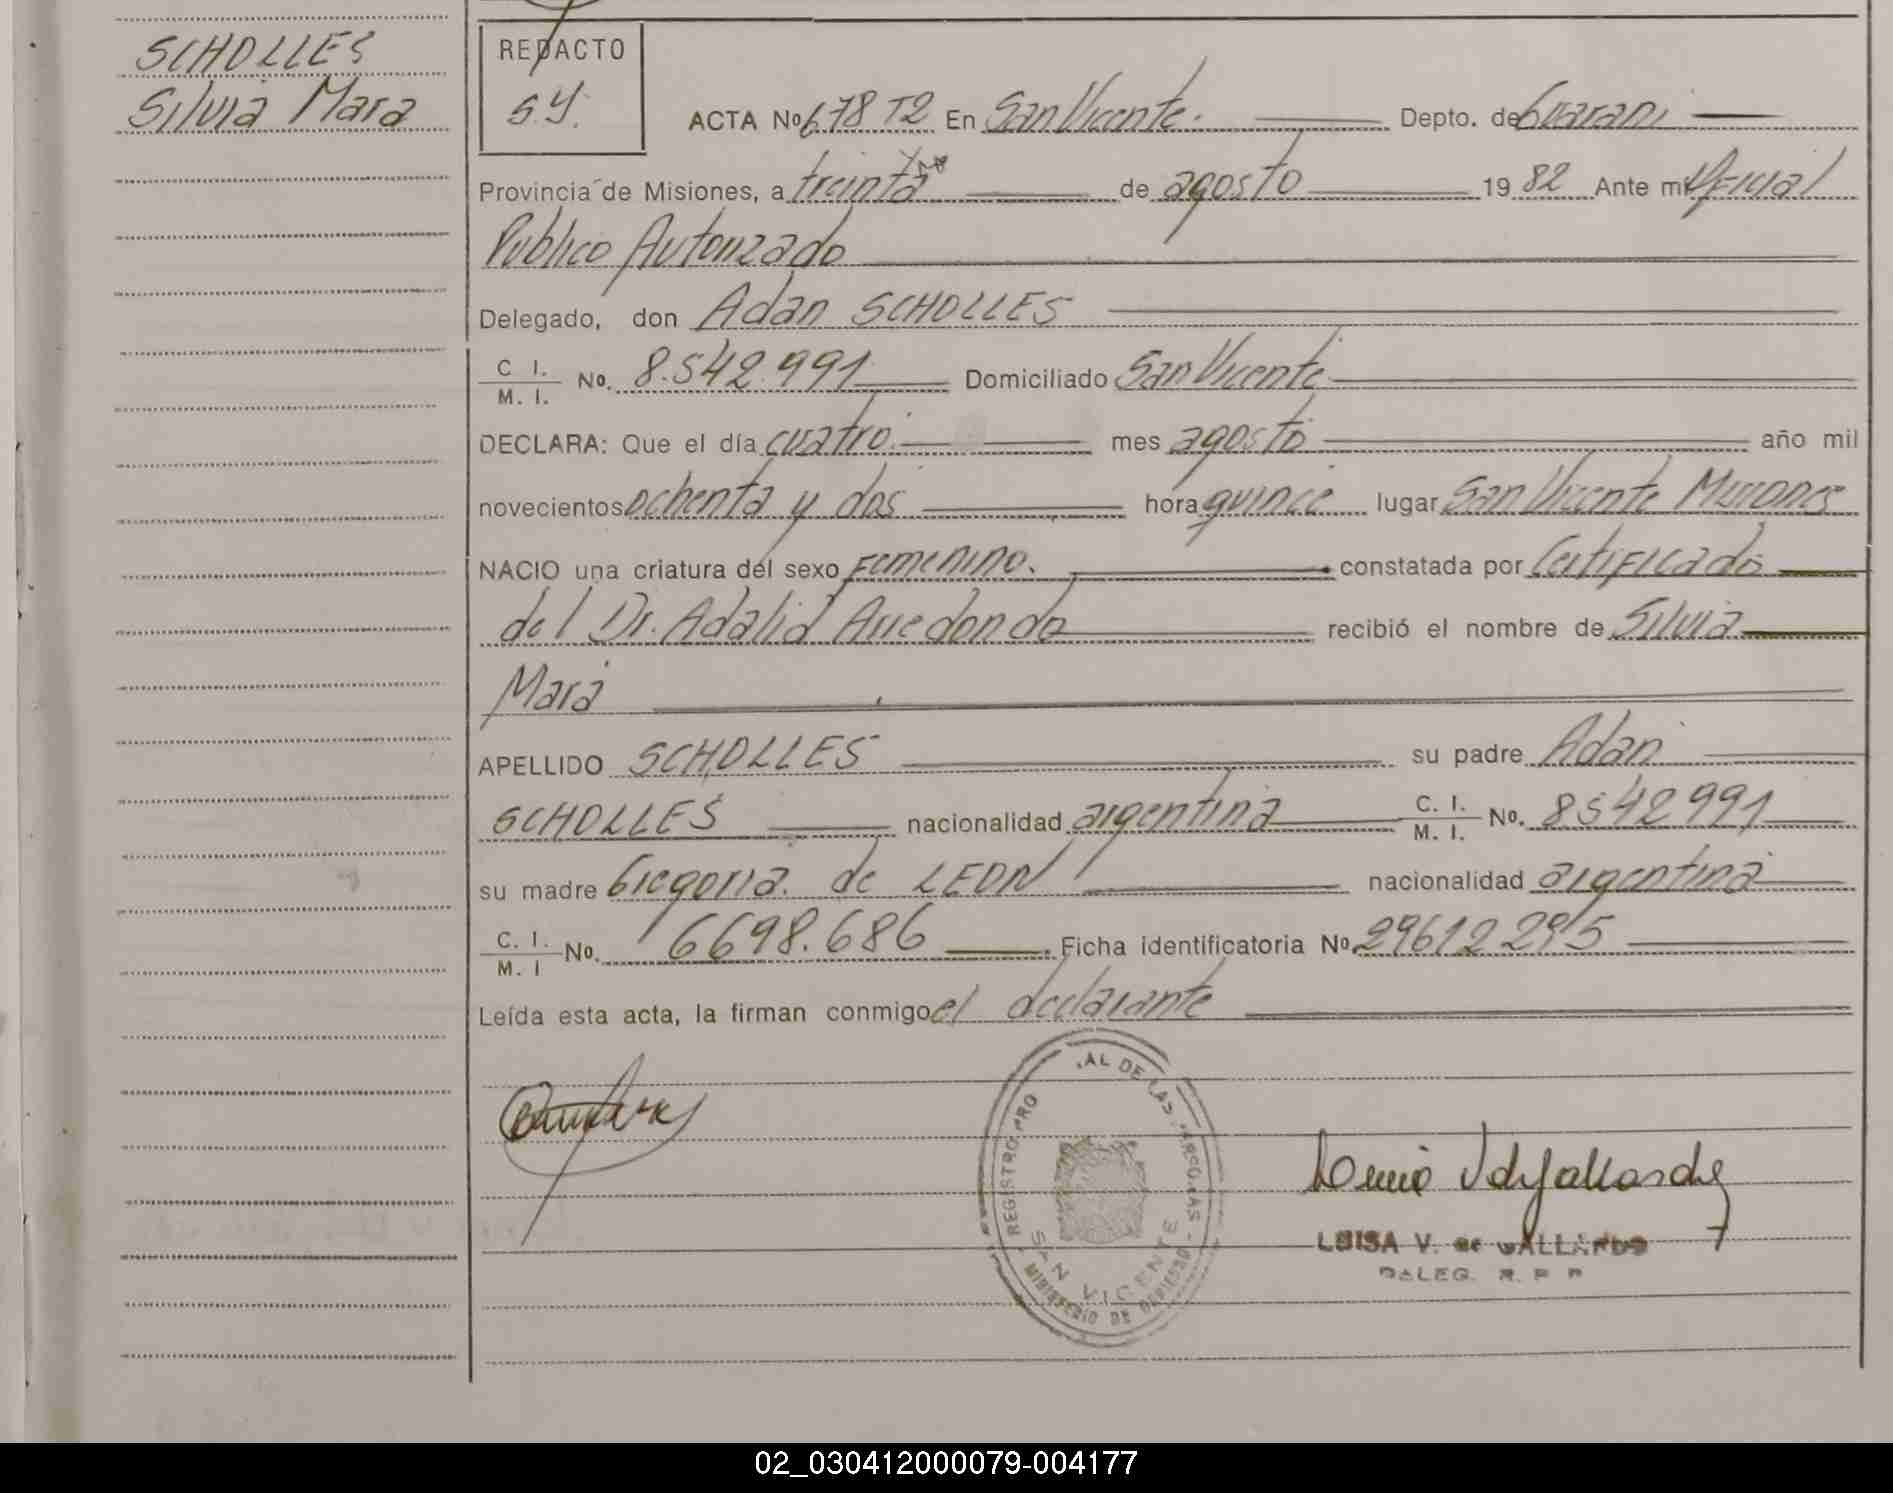 SCHOLLES
Silvia Mara
REDACTO
S.Y.
ACTA No 678 T2 En San Vicente. Depto. de Guarani
Provincia de Misiones, a treinta de agosto 19 82 Ante mi Oficial
Publico Autorizado
Delegado, don Adan SCHOLLES
C. I. / M. I. No. 8.542.991 Domiciliado San Vicente
DECLARA: Que el día cuatro mes agosto año mil
novecientos ochenta y dos hora quince lugar San Vicente Misiones
NACIO una criatura del sexo Femenino. constatada por Certificado
del Dr. Adalid Arredondo recibió el nombre de Silvia
Mara
APELLIDO SCHOLLES su padre Adan
SCHOLLES nacionalidad argentina C. I. / M. I. No. 8542991
su madre Gregoria de LEON nacionalidad argentina
C. I. / M. I No. 6698.686 Ficha identificatoria No. 29612295
Leída esta acta, la firman conmigo el declarante
REGISTRO PRO AL DE LAS PERSONAS
SAN VICENTE
MINISTERIO DE GOBIERNO
LUISA V. de GALLARDO
DELEG. R. P. P
02_030412000079-004177